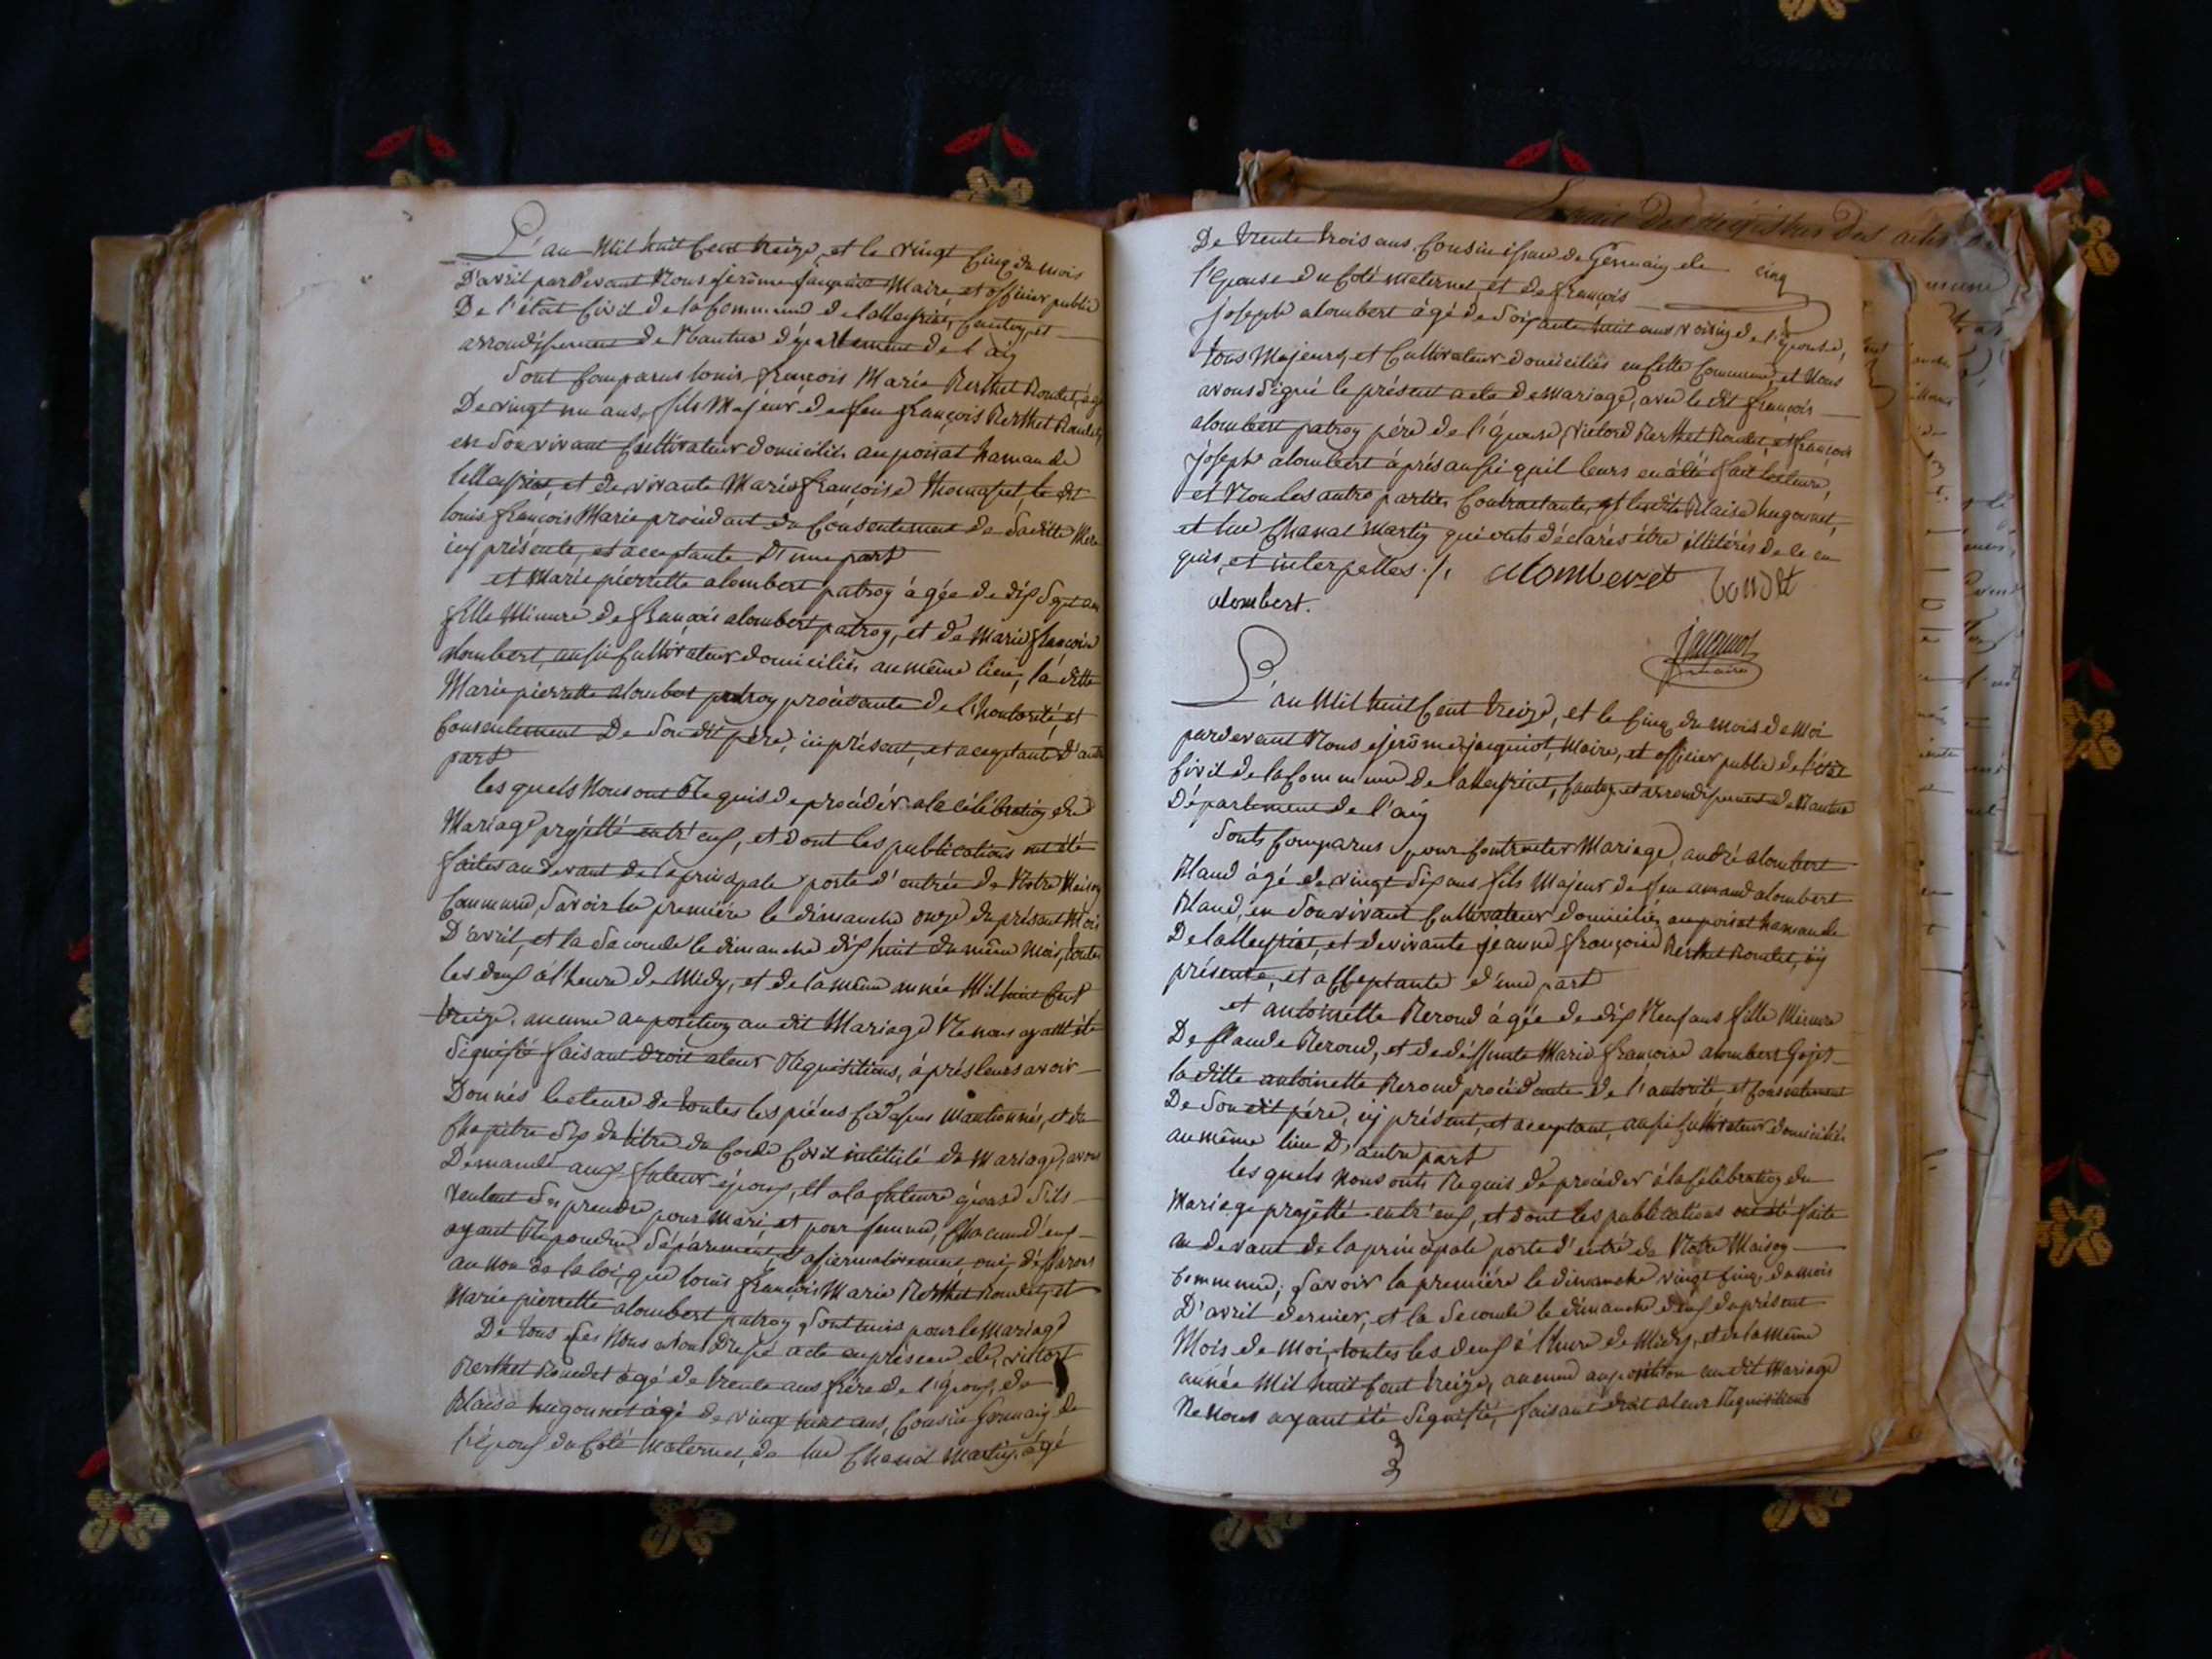 L'an Mil huit Cent treize, et le vingt Cinq du mois
D'avril par Devant Nous jerôme jacquiot Maire et officier public
De l'état Civil de la Commune de lalleyriat, Canton, et
arrondissement de Nantua département de l'ain
Sont Comparus louis françois Marie Berthet Bondet, âgé
De vingt un ans, fils Majeur de feu françois Berthet Bondet,
en Son vivant Cultivateur domicilié au poisat hamau de
lalleyriat, et de vivante Marie françoise thomasset, le dit
louis françois Marie procédant du Consentement de Saditte Mere
icy présente, et aceptante D'une part
et Marie pierrette alombert patroy âgée de dix Sept ans
fille Mineure de françois alombert patroy, et de Marie françoise
alombert, aussi Cultivateur domiciliés au même lieu, la ditte
Marie pierrette alombert patroy procédante de l'hautorité, et
Consentement De Son dit père, ici présent, et aceptante D'autre
part
les quels Nous ont Requis de procédér a la célébration du
Mariage projetté entr'eux, et dont les publications ont été
faites au devant de la principale porte d'entrée de Notre Maison
Commune, Savoir la première le dimanche onze du présent Mois
D'avril, et la Seconde le dimanche dix huit du même Mois, toutes
les deux à l'heure de Midy, et de la même année Mil huit Cent
treize. aucune auposition au dit Mariage Ne nous ayant été
Signifié faisant droit a leur Réquisitions, après leurs avoir
Donnés lecteure de toutes les pièces Cidesus Mantionnés, et du
Chapitre Six du titre du Code Civil intitulé du Mariage, avons
Demandé aux futeur époux, et a la futeure épouse S'ils
veulent Se prendre pour Mari et pour femme, Chacun d'eux
ayant Répondu Séparément et afiermativement oui, déClarons
au Nom de la loi, que louis françois Marie Berthet Bondet, et
Marie pierrette alombert patroy, Sont unis pour le Mariage
De tous Ces Nous avons Dressé acte en présence de, victort
Berthet Bondet âgé de trente ans frère de l'époux, de
Blaise hugonnet âgé de vingt huit ans, Cousin Germain de
l'époux du Coté Maternel, de luc Chanal Martin, âgé
cinq
De trente trois ans Cousin issue de Germain de
l'épouse du Coté maternel, et de françois
joseph alombert âgé de Soixante huit ans voisin de l'épouse,
tous Majeurs, et Cultivateur domiciliés en Cette Commune, et Nous
avons Signé le présent acte de Mariage, avec le dit françois
alombert patroy père de l'épouse, victord Berthet Bondet, et françois
joseph alombert après aussi qu'il leurs en à été fait lecteure,
et Non les autre parties Contractante, et lesdits Blaise hugonnet,
et luc Chanal Martin qui onts déclarés être illitérés de ce en
quis, et interpellés ./. alomberet bondet
alombert.
jacquiot
Maire
L'an Mil huit Cent treize, et le Cinq du mois de Mai
pardevant Nous jerôme jacquiot, Maire, et officier public de l'état
Civil de la Commune de lalleyriat, Canton, et arrondissement de Nantua
Département de l'ain
Sonts Comparus pour Contracter Mariage, andré alombert
Bland âgé de vingt Six ans fils Majeur de feu amand alombert
Bland, en Son vivant Cultivateur domiciliés au poisat hamau de
De lalleyriat, et de vivante jeanne françoise Berthet Bondet, icy
présente, et acceptante d'une part
et antoinette Beroud âgée de dix Neuf ans fille Mineure
De Claude Beroud, et de déffunte Marie françoise alombert Gojet
la ditte antoinette Beroud procédante de l'autorité, et Consentement
De Son dit père, icy présent, et aceptant, aussi Cultivateur domiciliés
au même lieu D'autre part
les quels Nous onts Requis de procéder à la Célébration du
Mariage projetté entr'eux, et dont les publications ont été faite
au devant de la principale porte d'entré de Notre Maison
Commune; Savoir la première le dimanche vingt Cinq du mois
D'avril dernier, et la Seconde le dimanche deux du présent
Mois de Mai, toutes les deux à l'heure de Midy, et de la même
année Mil huit Cent treize, aucune auposition au dit Mariage
Ne Nous ayant été Signifié, faisant droit a leur Réquisitions